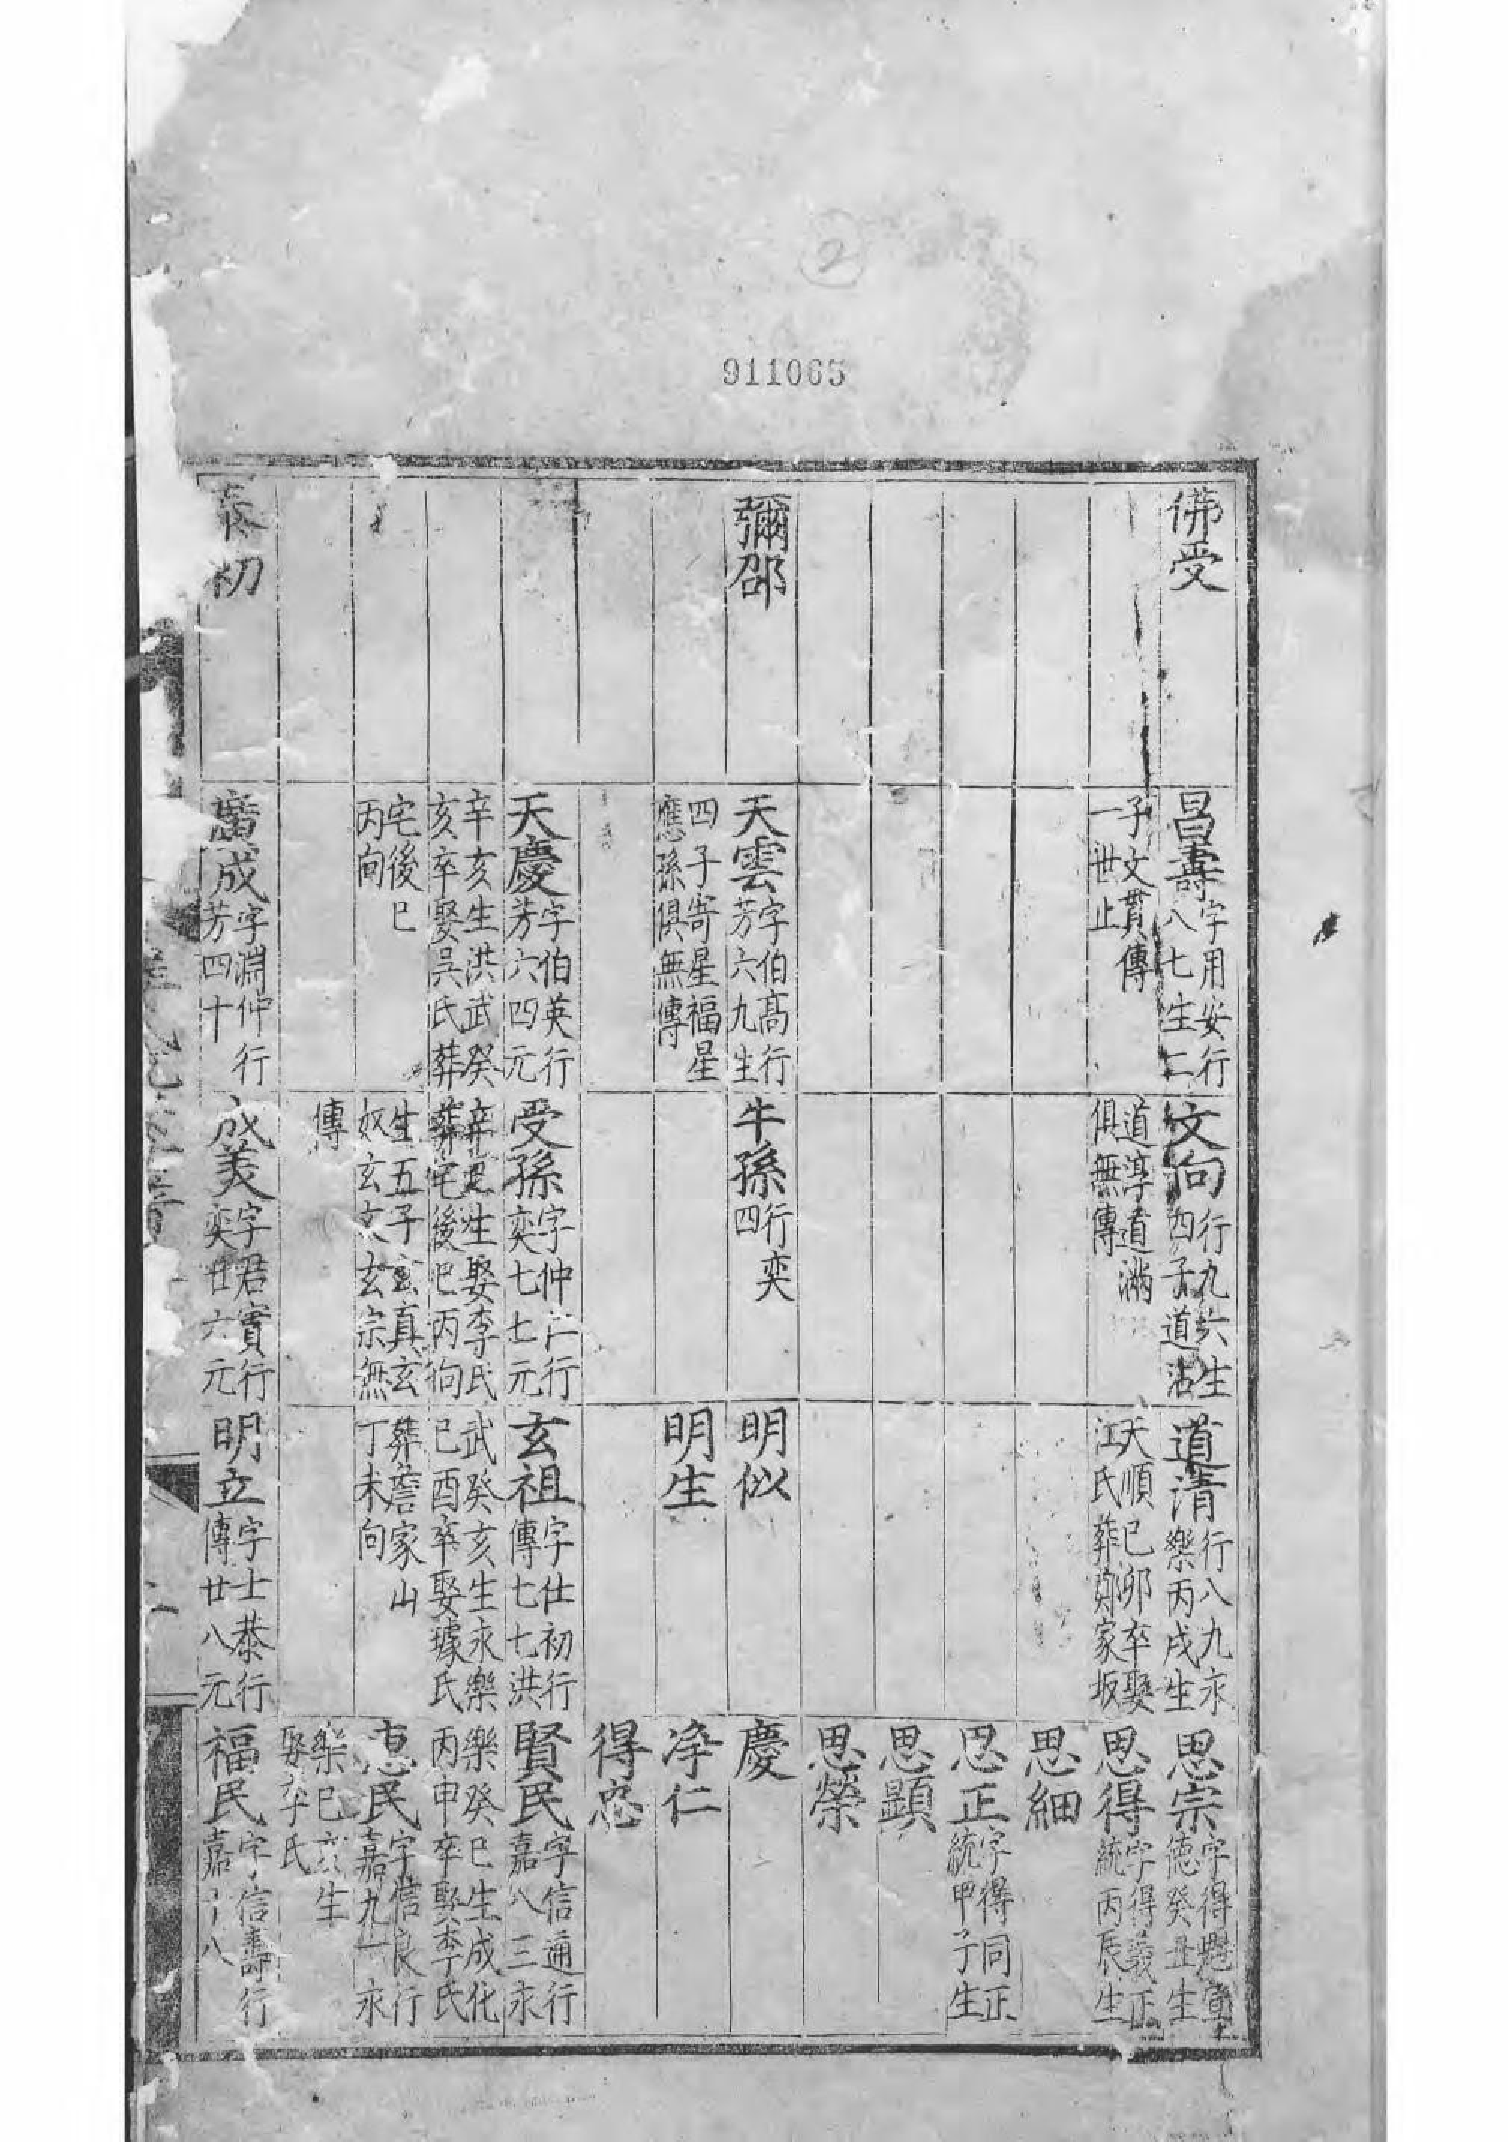 2
911065
佛受
彌邵
初
昌壽字用安行
八七生二
子文貫傳
一世止
天雲字伯高行
芳六九生
四子寄星福星
應孫俱無傳
天慶字伯英行
芳六四元
辛亥生洪武癸
亥卒娶吳氏葬
宅後巳
丙向
廣成字淵仲行
芳四十
文向行九六生
四子道沾
道淳道滿
俱無傳
牛孫行奕
四
受孫字仲仁行
奕七七元
生娶李氏
葬宅後巳丙向
生五子玄真玄
奴玄文玄宗無
傳
成美字君實行
奕廿六元
道清行八九永
樂丙戌生
天順己卯卒娶
江氏葬鄭家坂
明似
明生
玄祖字仕初行
傳七七洪
武癸亥生永樂
己酉卒娶璩氏
葬詹家山
丁未向
明立字士恭行
傳廿八元
思宗字得 宣
德癸丑生
思得字得義正
統丙辰生
思細
思正字得同正
統甲子生
思顯
思榮
慶
淨仁
得忠
賢民字信通行
嘉八三永
樂癸巳生成化
丙申卒娶李氏
惠民字信良行
嘉九一永
樂巳亥生
娶李氏
福民字信壽行
嘉 八